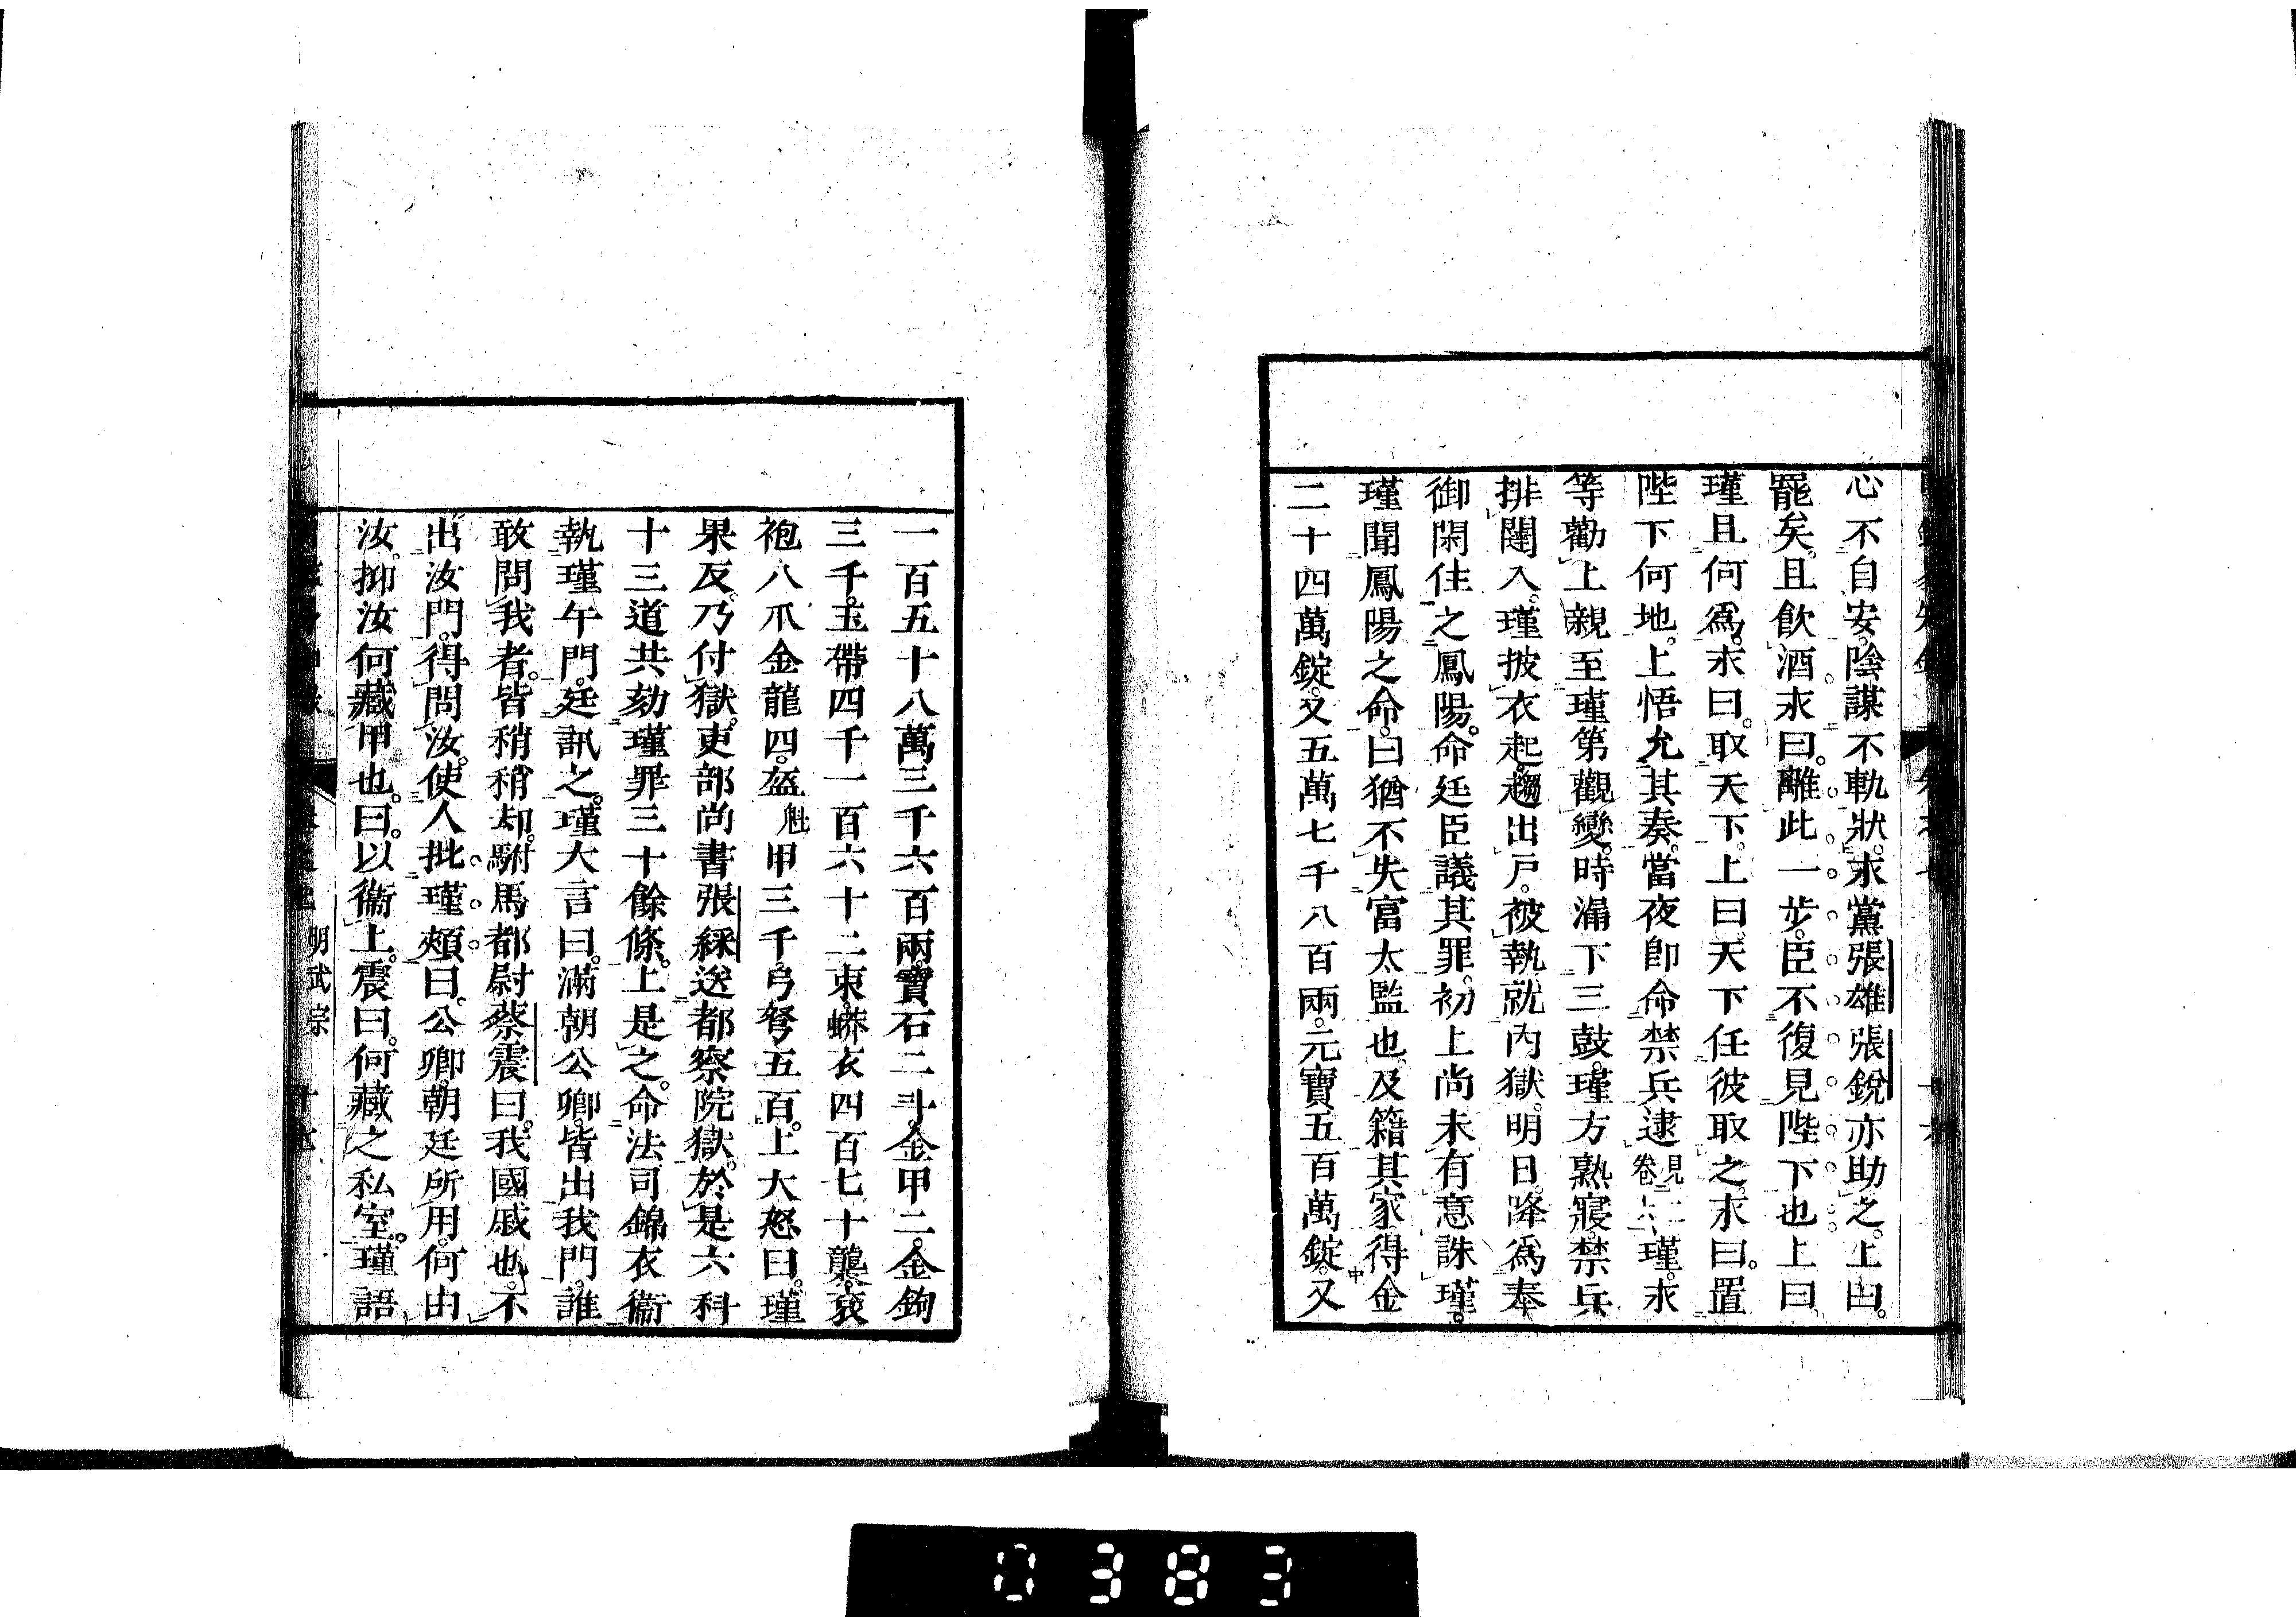 心不自安。陰謀不軌狀。永黨張雄張銳亦助之。上曰。
罷矣。且飲酒永曰。離此一步。臣不復見陛下也上曰
瑾且何爲。永曰。取天下。上曰。天下任彼取之。永曰。置
陛下何地。上悟允其奏。當夜卽命禁兵逮見二卷瑾。永
等勸上親至瑾第觀變。時漏下三鼓。瑾方熟寢。禁兵
排闥入。瑾披衣起。趨出戶。被執就內獄。明日。降爲奉
御閑住之鳳陽。命廷臣議其罪。初上尚未有意誅瑾。
瑾聞鳳陽之命。曰猶不失富太監也。及籍其家得金
二十四萬錠。又五萬七千八百兩。元寶五百萬錠。又
一百五十八萬三千六百兩。寶石二斗。金甲二。金鉤
三千。玉帶四千一百六十二束。蟒衣四百七十襲。袞
袍八爪金龍四。盔魁甲三千。弓弩五百。上大怒曰。瑾
果反。乃付獄。吏部尚書張綵送都察院獄。於是六科
十三道共劾瑾罪三十餘條。上是之。命法司錦衣衞
執瑾午門。廷訊之。瑾大言曰。滿朝公卿。皆出我門。誰
敢問我者。皆稍稍却。駙馬都尉蔡震曰。我國戚也。不
出汝門。得問汝。使人批瑾頰曰。公卿。朝廷所用。何由
汝。抑汝何藏甲也。曰。以衞上。震曰。何藏之私室。瑾語
明武宗
0383